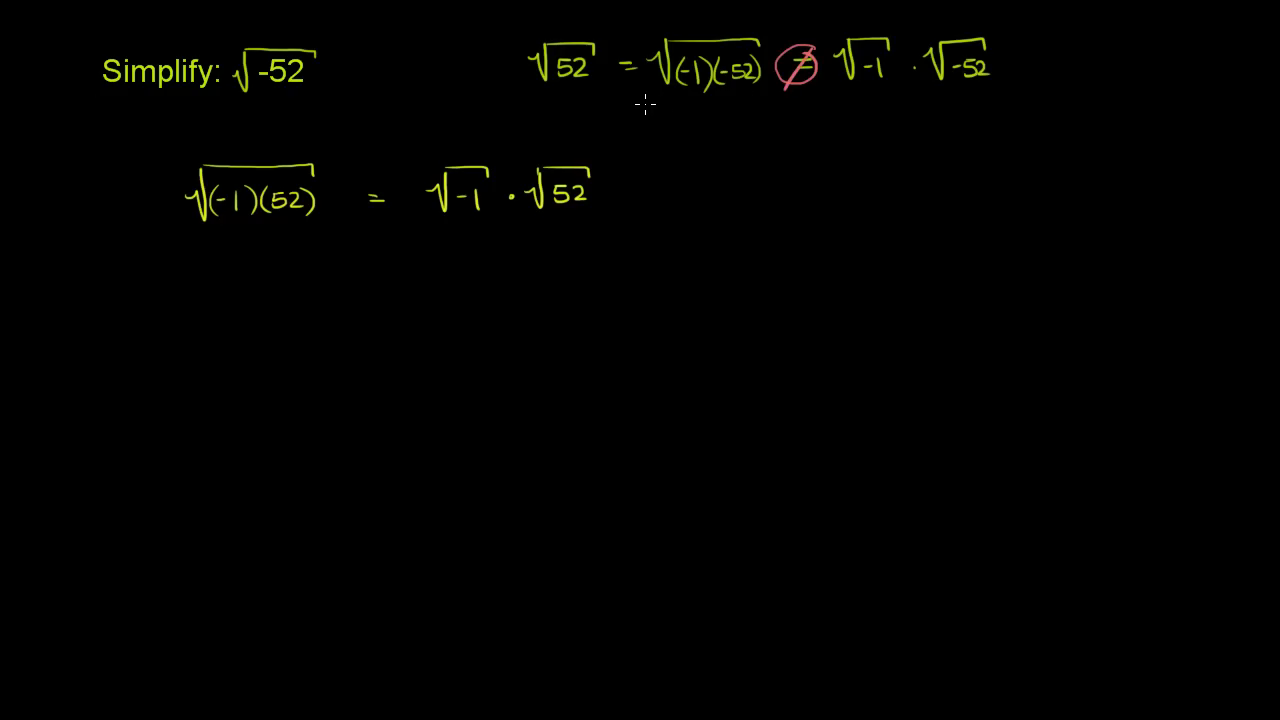 Simplify: √-52
√52 = √(-1)(-52) ≠ √-1 · √-52
√(-1)(52) = √-1 · √52